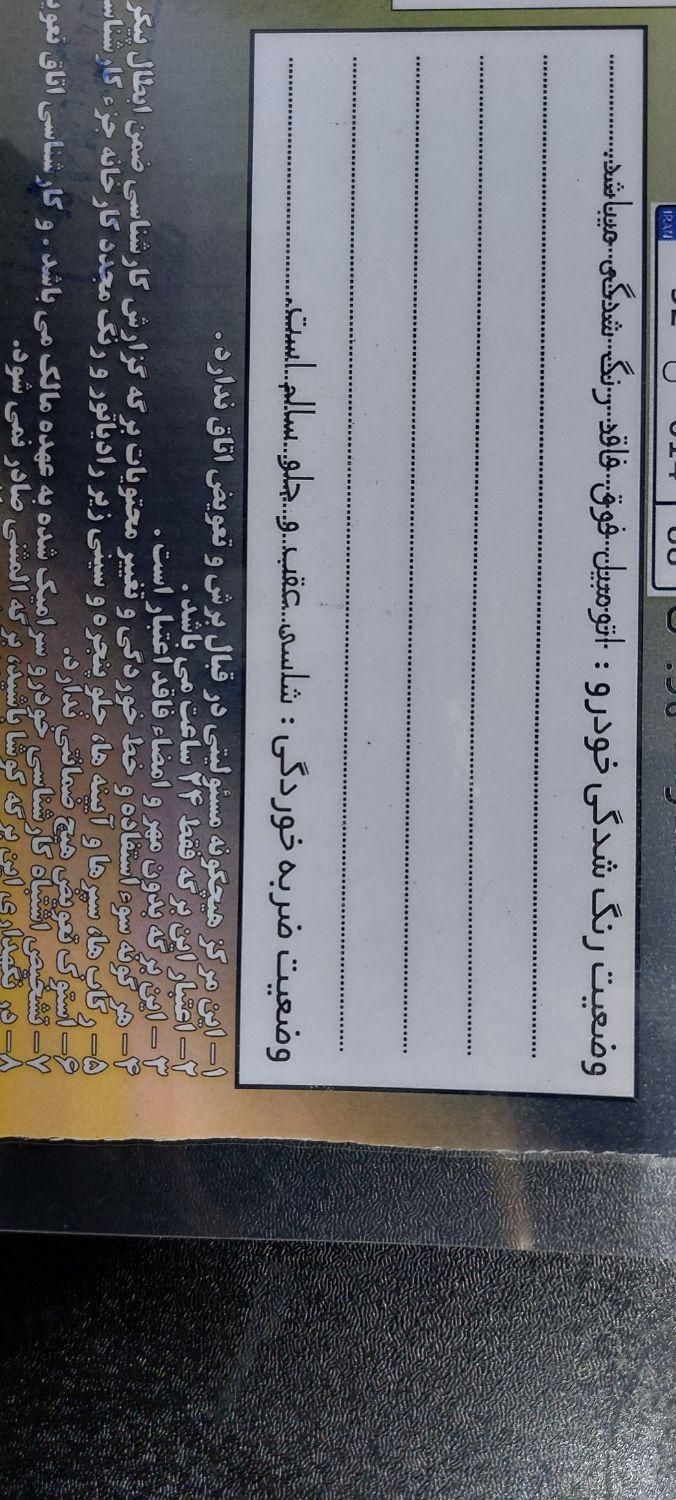 IRAN
وضعیت رنگ شدگی خودرو : اتومبیل فوق فاقد رنگ شدگی میباشد.
وضعیت ضربه خوردگی : شاسی عقب و جلو سالم است.
۱- این مرکز هیچگونه مسئولیتی در قبال برش و تعویض اتاق ندارد.
۲- اعتبار این برگه فقط ۲۴ ساعت می باشد.
۳- این برگه بدون مهر و امضاء فاقد اعتبار است.
۴- هر گونه سوء استفاده و خط خوردگی و تغییر محتویات برگه گزارش کارشناسی ضمن ابطال
۵- رکاب ها، سپرها و آیینه ها، جلو پنجره و سینی زیر رادیاتور و رنگ مجدد کارخانه جزء
۶- استوک تعویض هیچ ضمانتی ندارد.
۷- تشخیص اشتباه کارشناسی خودرو سرامیک شده به عهده مالک می باشد. و کارشناسی اتاق
۸- در نگهداری این برگه کوشا باشید، برگه المثنی صادر نمی شود.